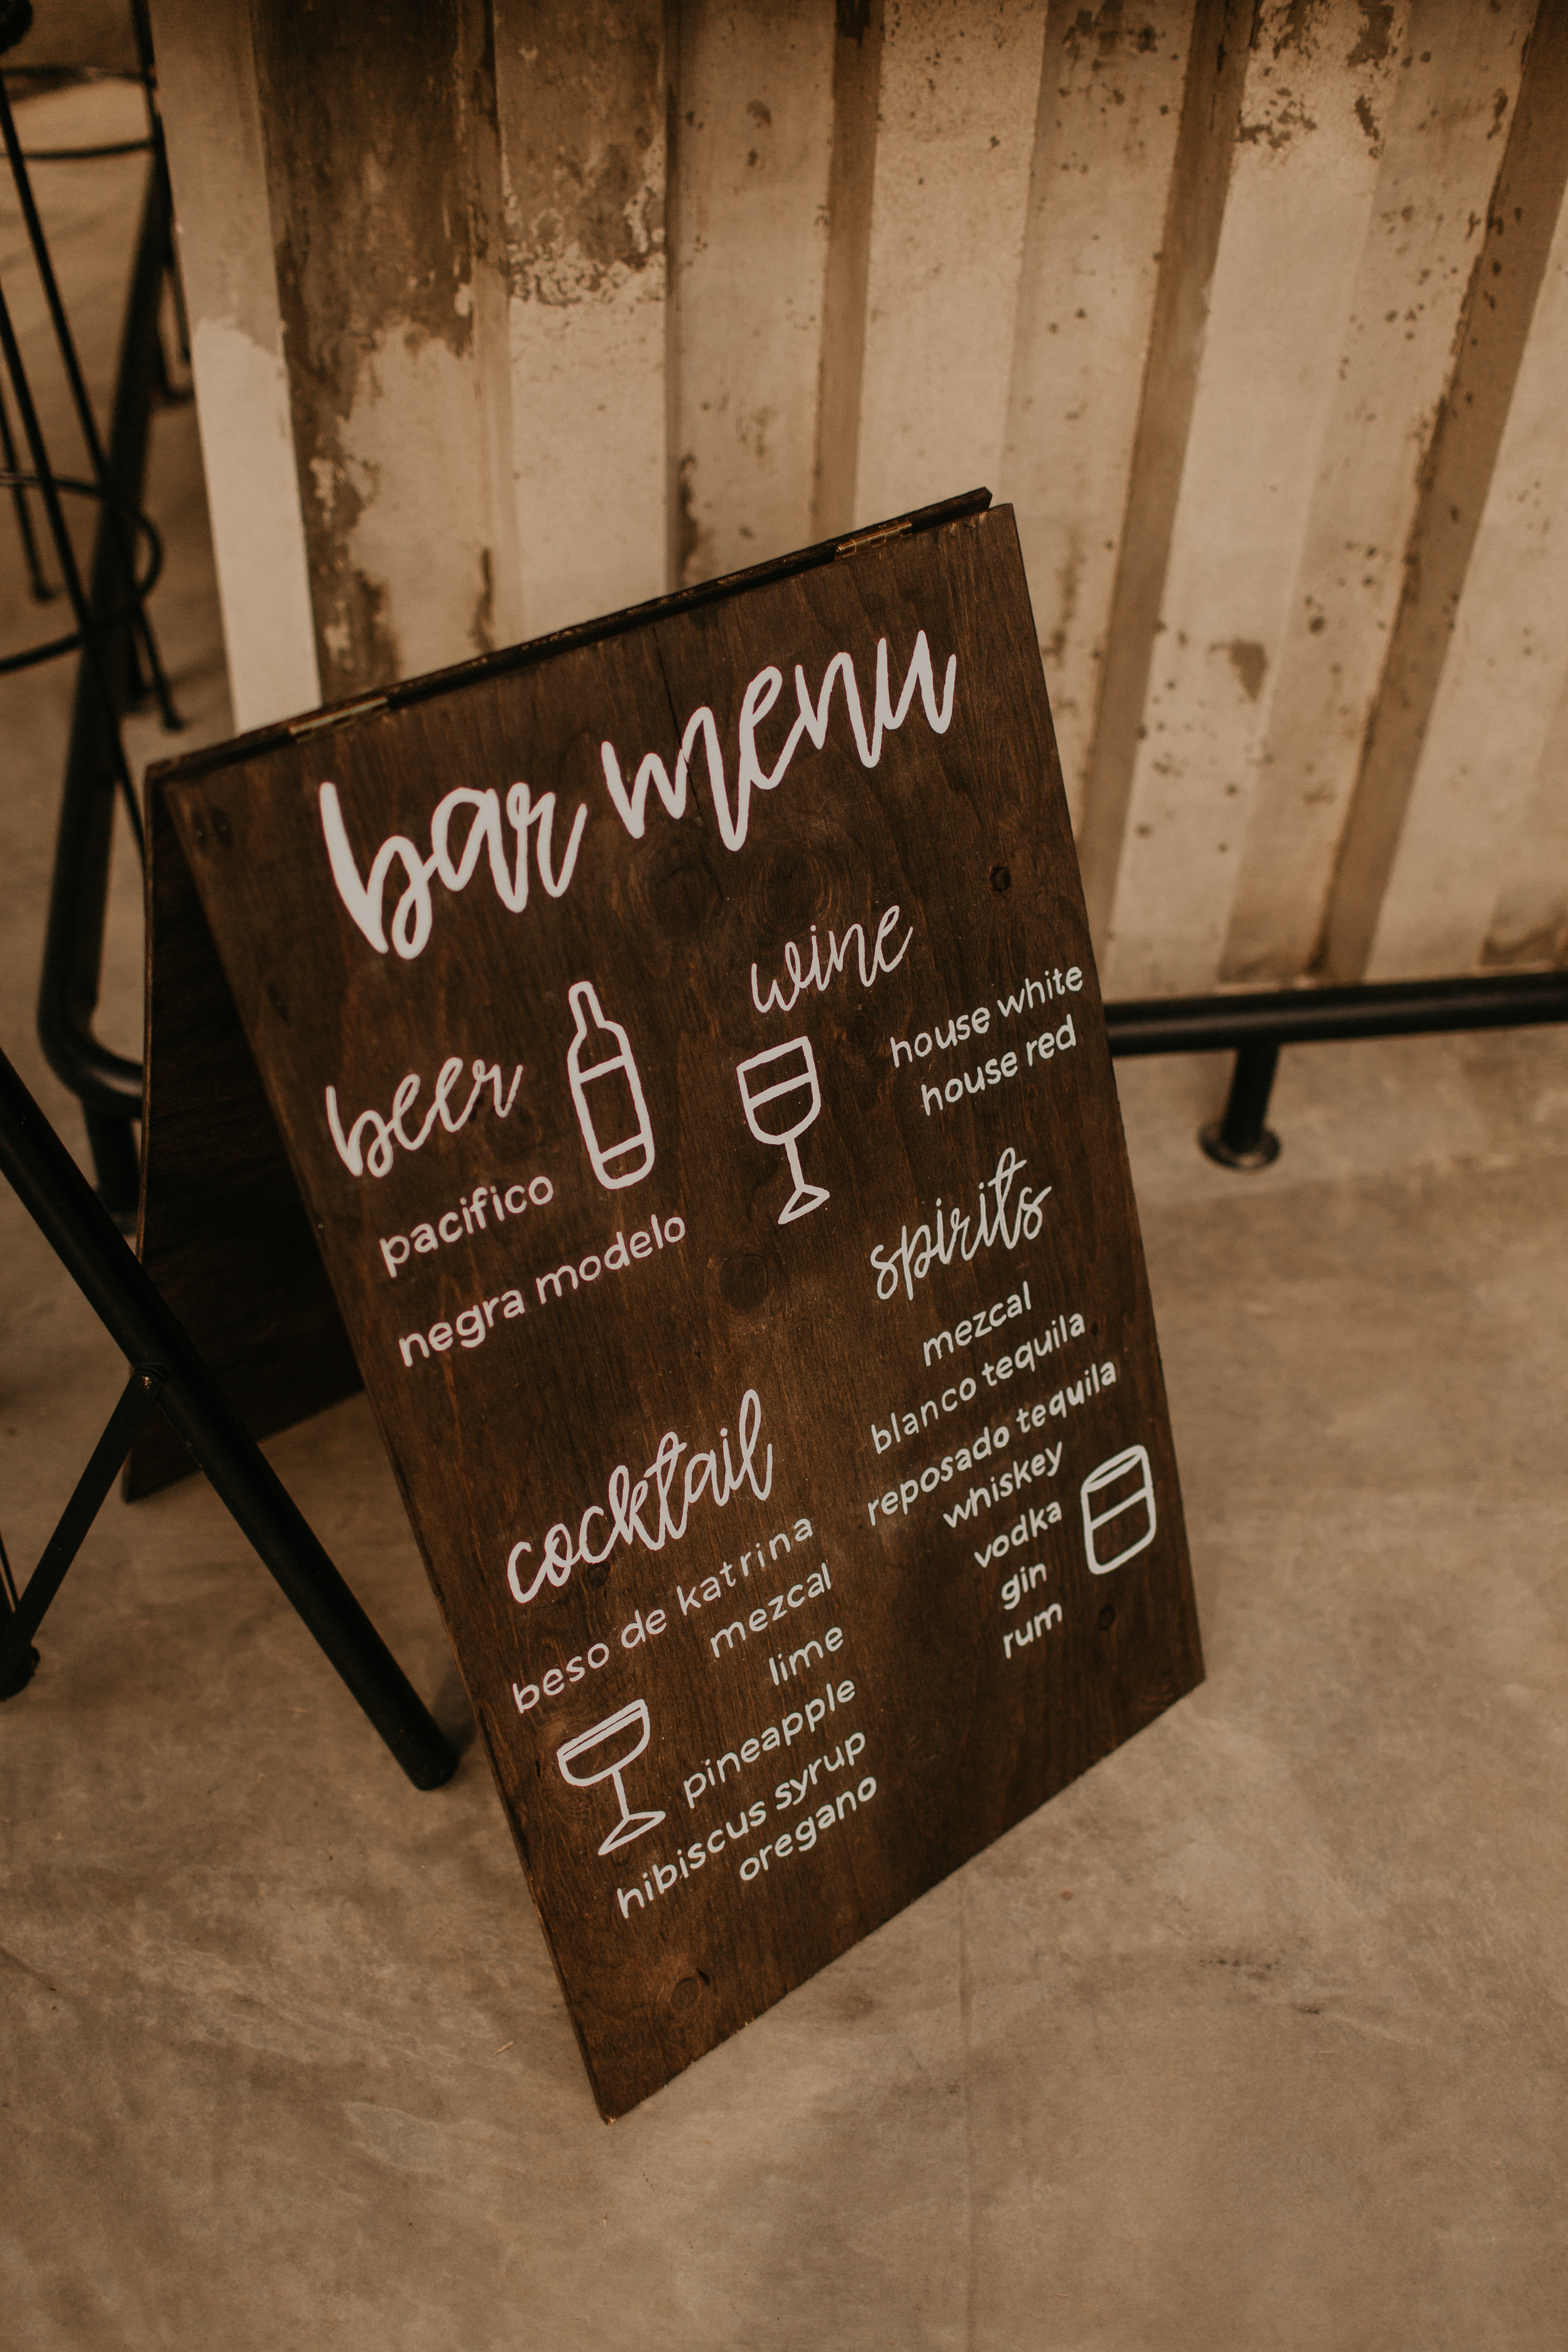 bar menu
beer
pacifico
negra modelo
wine
house white
house red
cocktail
beso de katrina
mezcal
lime
pineapple
hibiscus syrup
oregano
spirits
mezcal
blanco tequila
reposado tequila
whiskey
vodka
gin
rum